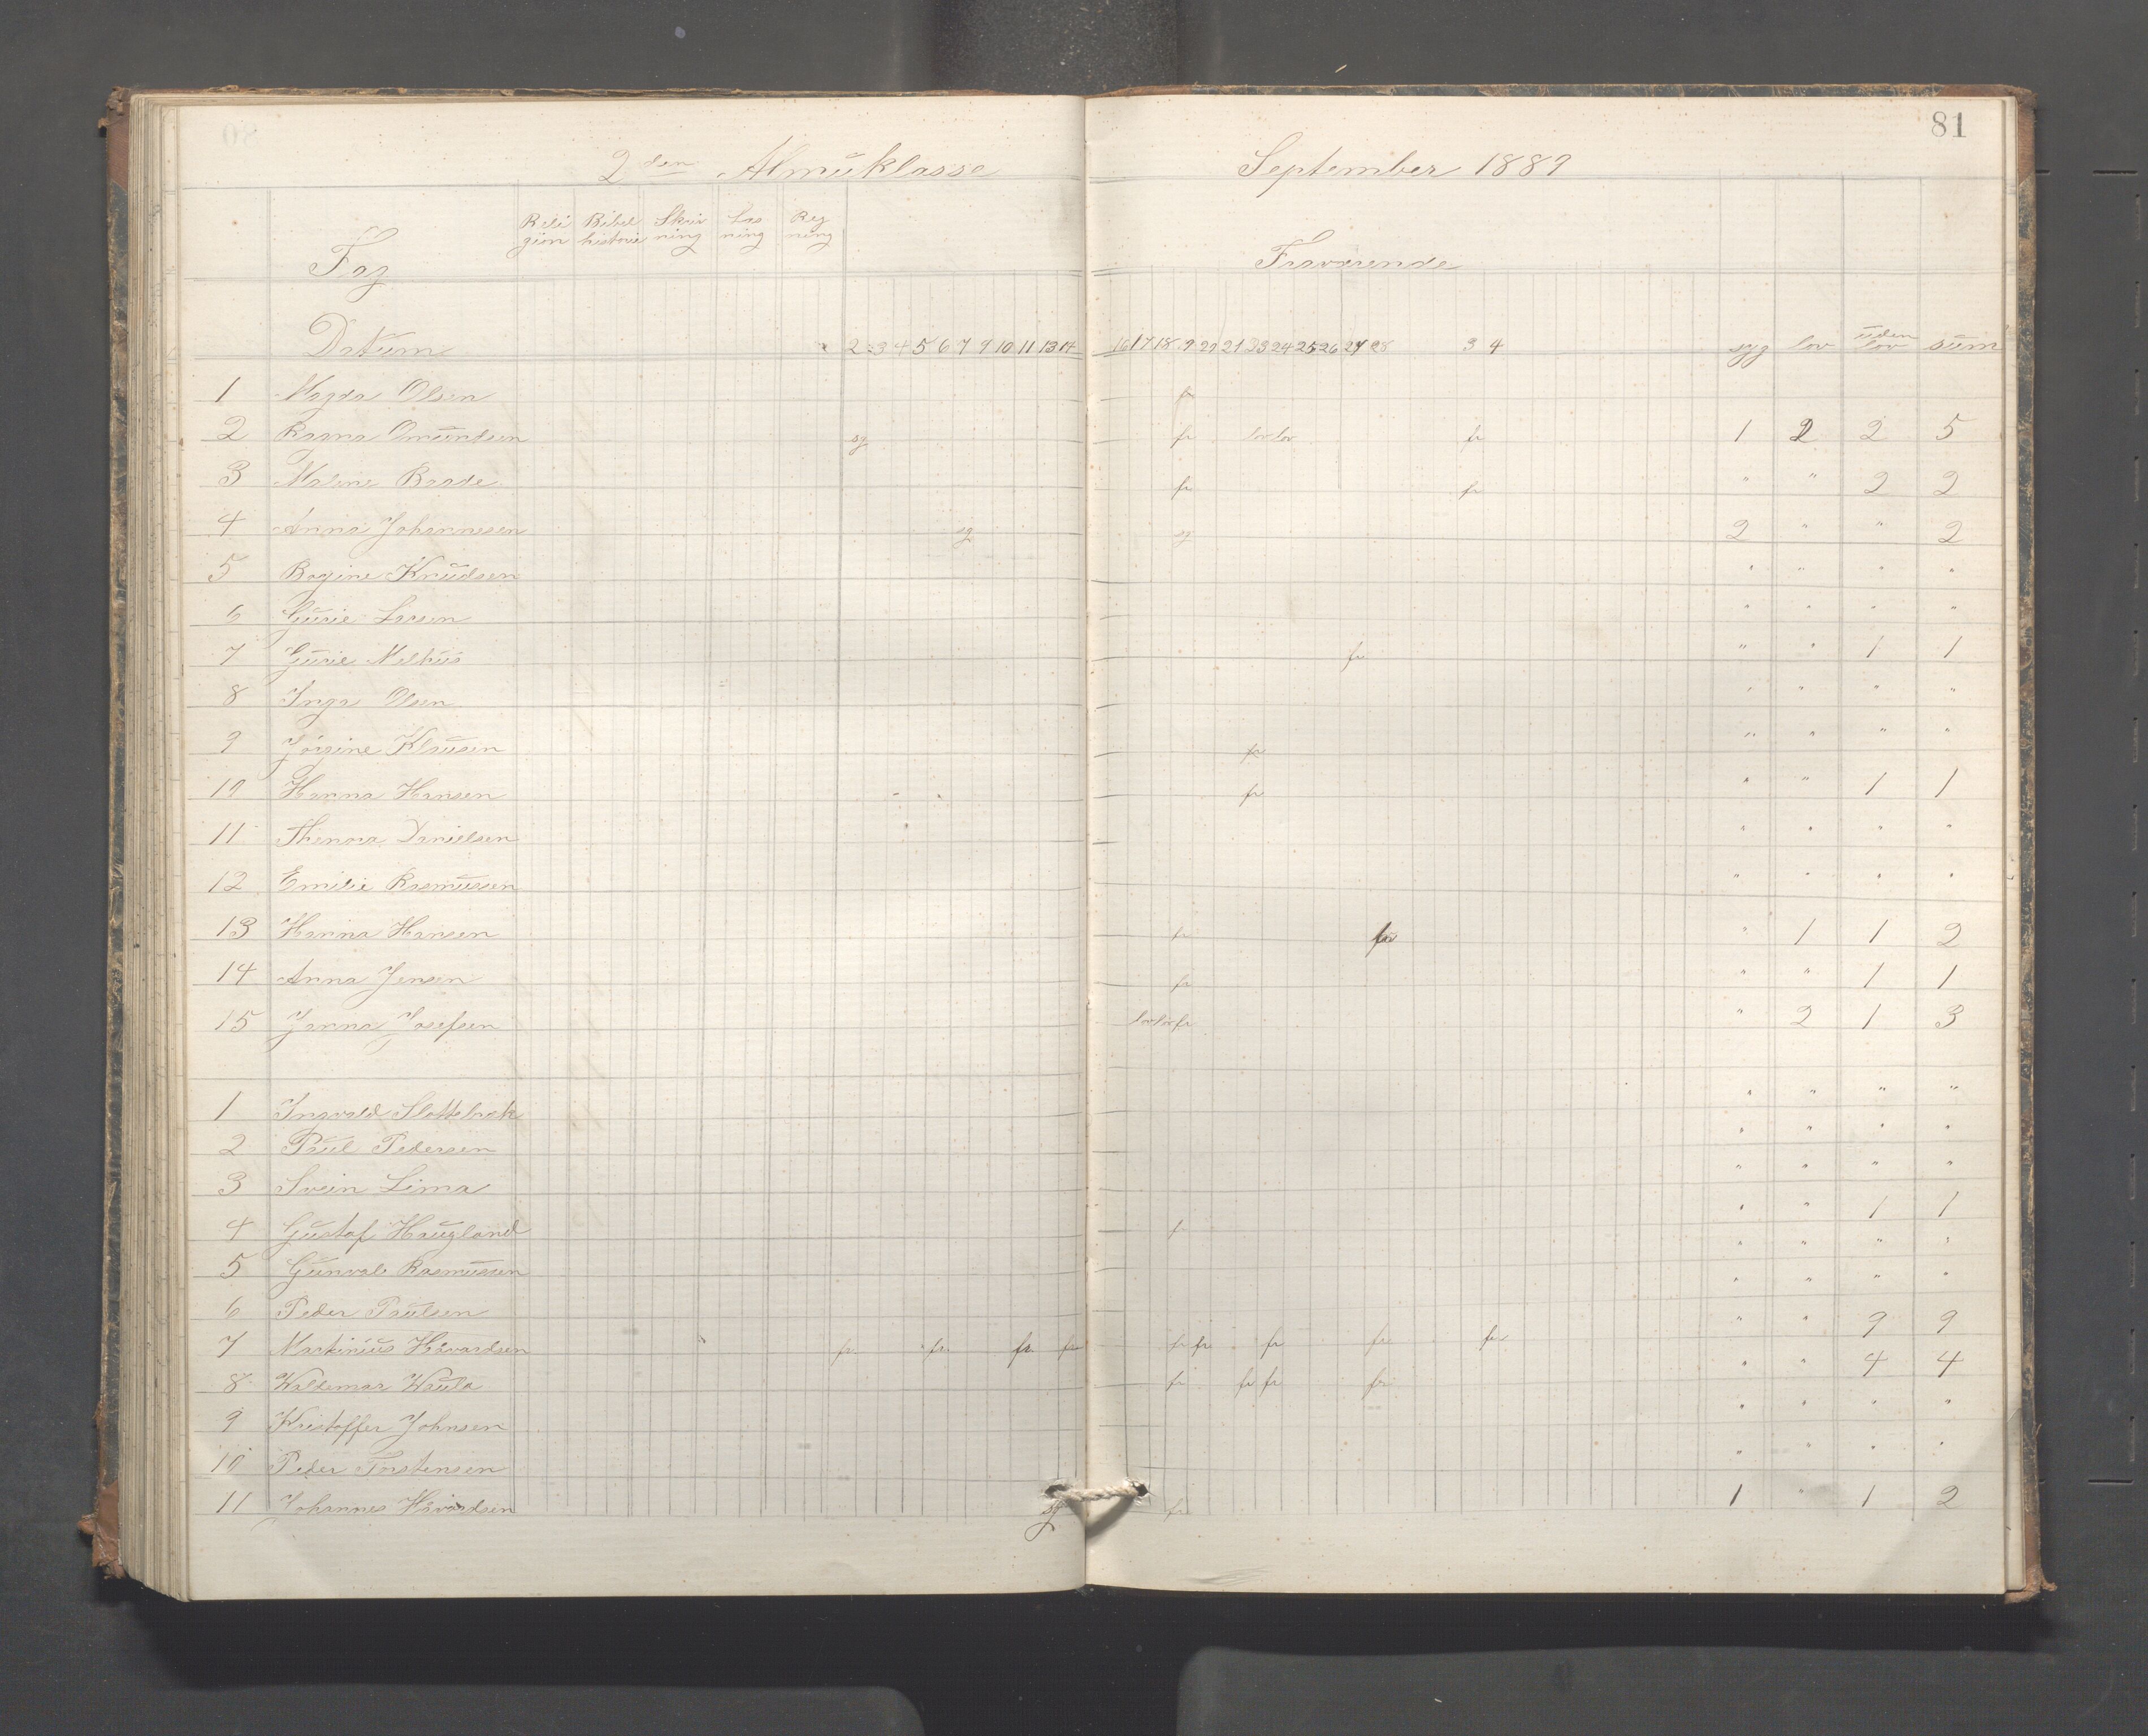 81
2den Almuklasse September 1889
Fag Religion Bibelhistorie Skrivning Læsning Regning Fraværende
Datum 2 3 4 5 6 7 9 10 11 13 14 16 17 18 19 20 21 23 24 25 26 27 28 3 4 syg lov uden lov sum
1 Magda Olsen fr
2 Ragna Omundsen sg fr lov lov fr 1 2 2 5
3 Maline Baade fr fr " " 2 2
4 Anna Johannesen sg sg 2 " " 2
5 Bogine Knudsen " " " "
6 Gurie Larsen " " " "
7 Gurie Melhus fr " " 1 1
8 Inga Olsen " " " "
9 Jørgine Klausen fr " " " "
10 Hanna Hansen fr " " 1 1
11 Thenora Danielsen " " " "
12 Emilie Rasmussen " " " "
13 Hanna Hansen fr " 1 1 2
14 Anna Jensen fr " " 1 1
15 Janna Josefsen lov lov fr " 2 1 3
1 Ingvald Slottebrek " " " "
2 Paul Pedersen " " " "
3 Svein Lima " " " "
4 Gustaf Haugland fr " " 1 1
5 Gunvald Rasmussen " " " "
6 Peder Paulsen " " " "
7 Martinius Håvardsen fr. fr. fr. fr fr fr fr fr fr " " 9 9
8 Waldemar Waula fr fr fr fr " " 4 4
9 Kristoffer Johnsen " " " "
10 Peder Torstensen " " " "
11 Johannes Håvardsen sg fr 1 " 1 2